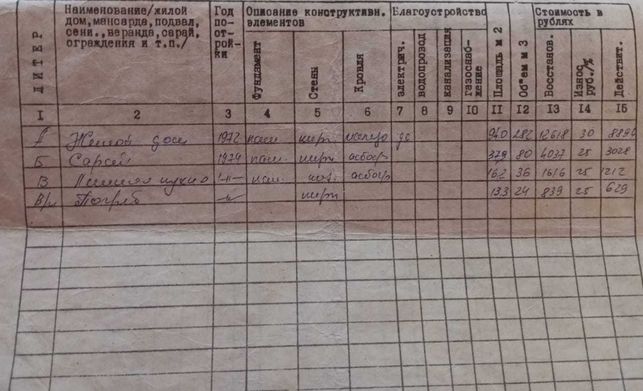 ЛИТЕР
Наименование/жилой
дом, мансарда, подвал,
сени., веранда, сарай,
ограждения и т.п./
Год
по-
от-
рой-
ки
Описание конструктивн.
элементов
Фундамент
Стены
Кровля
Благоустройство
электрич.
водопровод
канализация
газоснаб-
жение
Площадь м 2
Об"ем м 3
Стоимость в
рублях
Восстанов.
Износ
руб./%
Действит.
I 2 3 4 5 6 7 8 9 10 11 12 13 14 15
А Жилой дом 1972 кирп да 282 12618 30
Б Сарай 1974 кирп асбоф 37,9 80 4037 25 3028
В кухня -"- асбоф 16,2 36 1616 25 1212
Погреб кирп 13,3 24 839 25 629